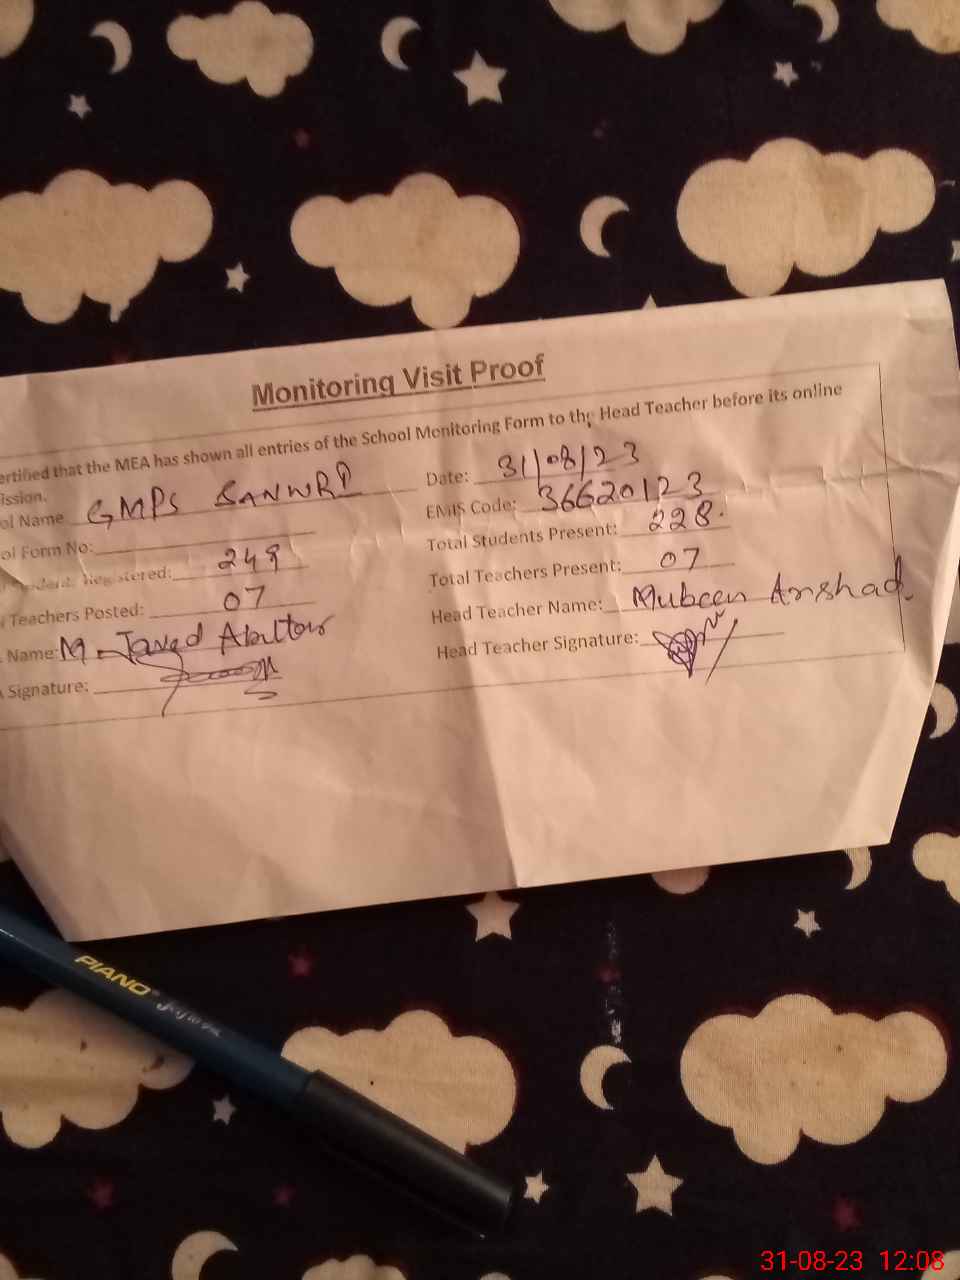 Monitoring Visit Proof
ertified that the MEA has shown all entries of the School Monitoring Form to the Head Teacher before its online
ission.
ol Name GMPS SANWRD
Date: 31/08/23
ol Form No:
EMIS Code: 36620123
Registered: 249
Total Students Present: 228.
Teachers Posted: 07
Total Teachers Present: 07
Name: M. Javed
Head Teacher Name: Mubeen Arshad.
Signature:
Head Teacher Signature:
PIANO
31-08-23 12:08